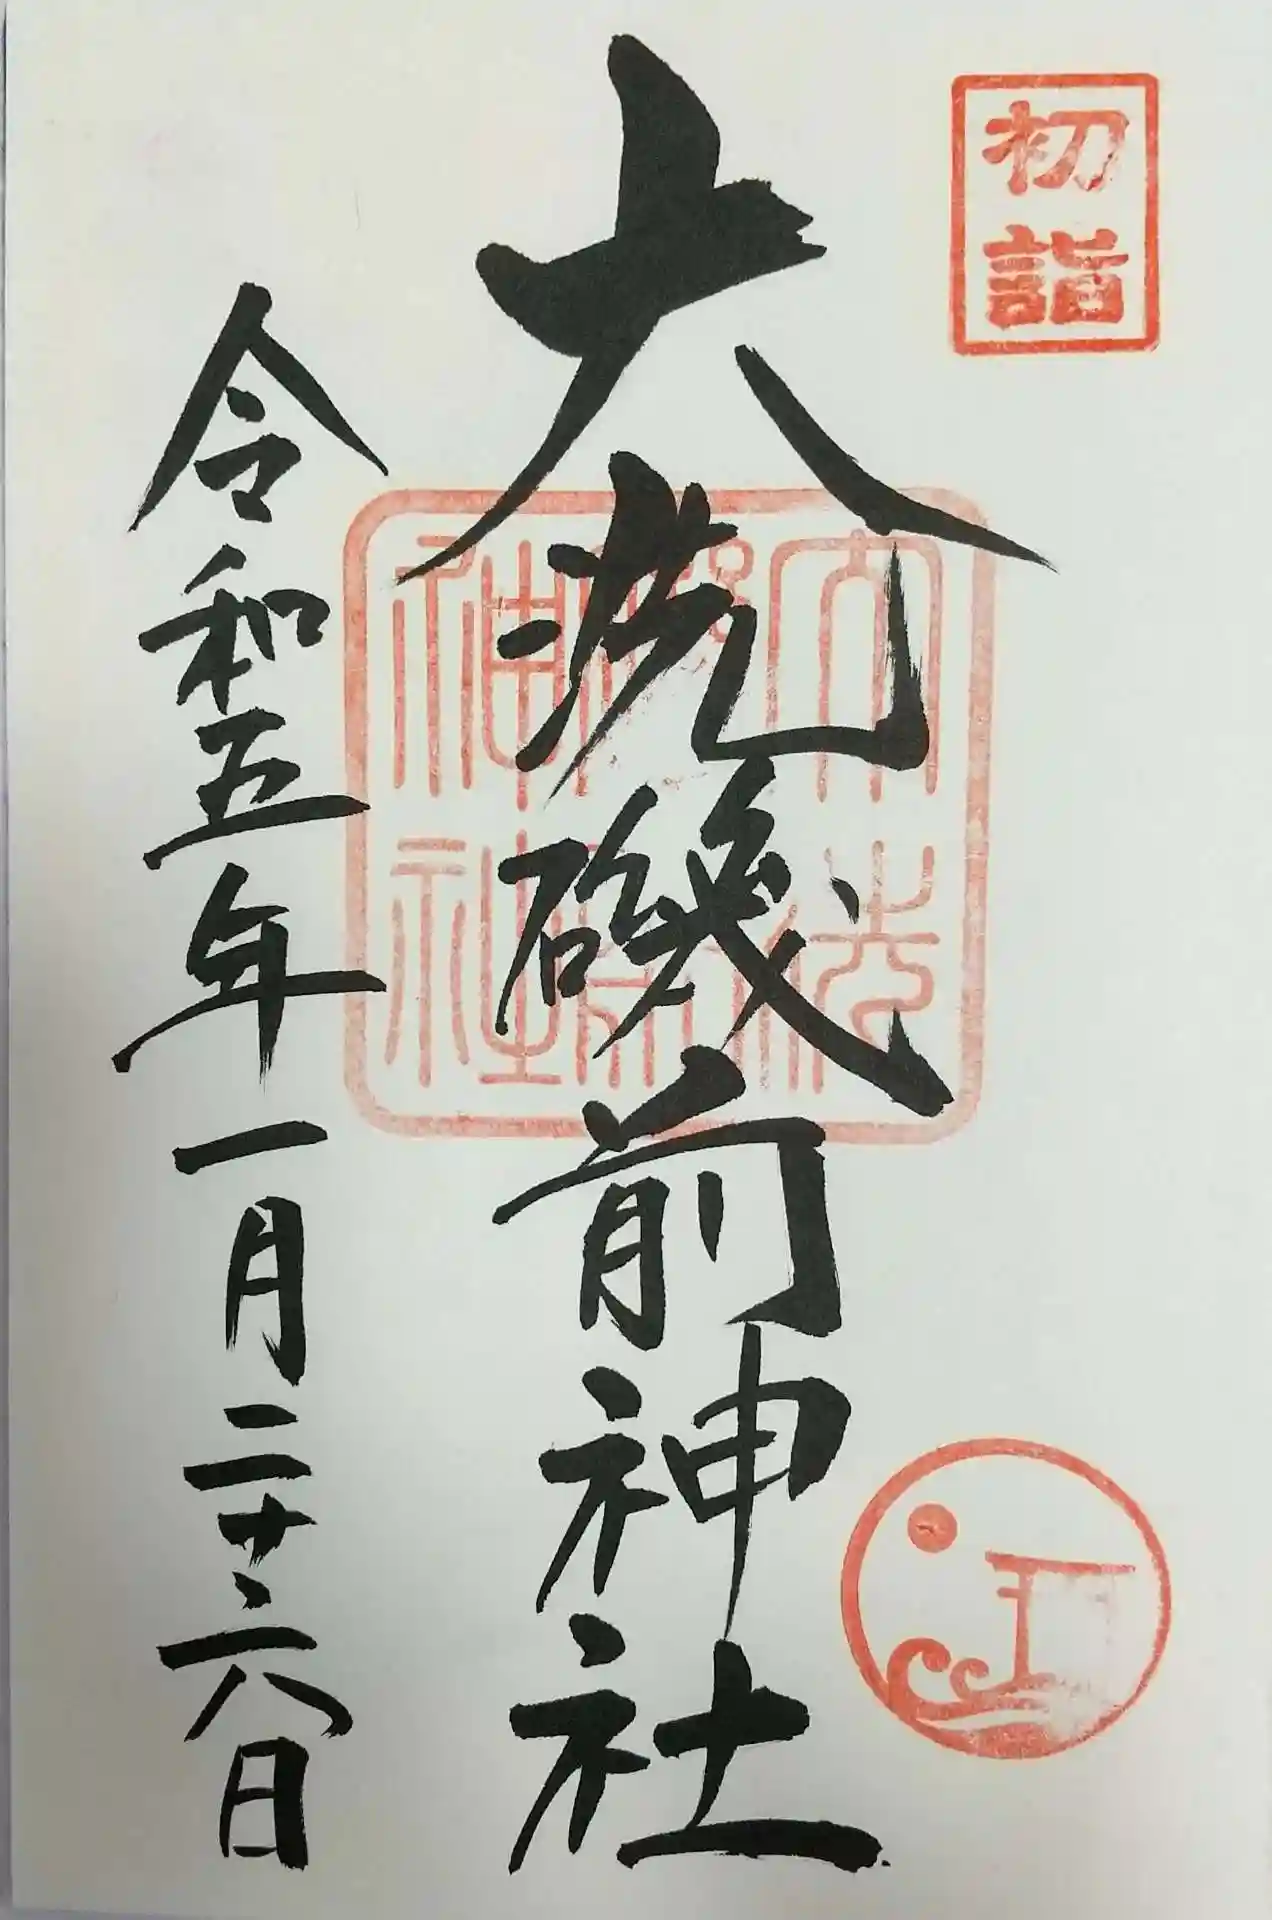 初詣
大洗磯前神社
大洗
磯前
神社
令和五年一月二十六日